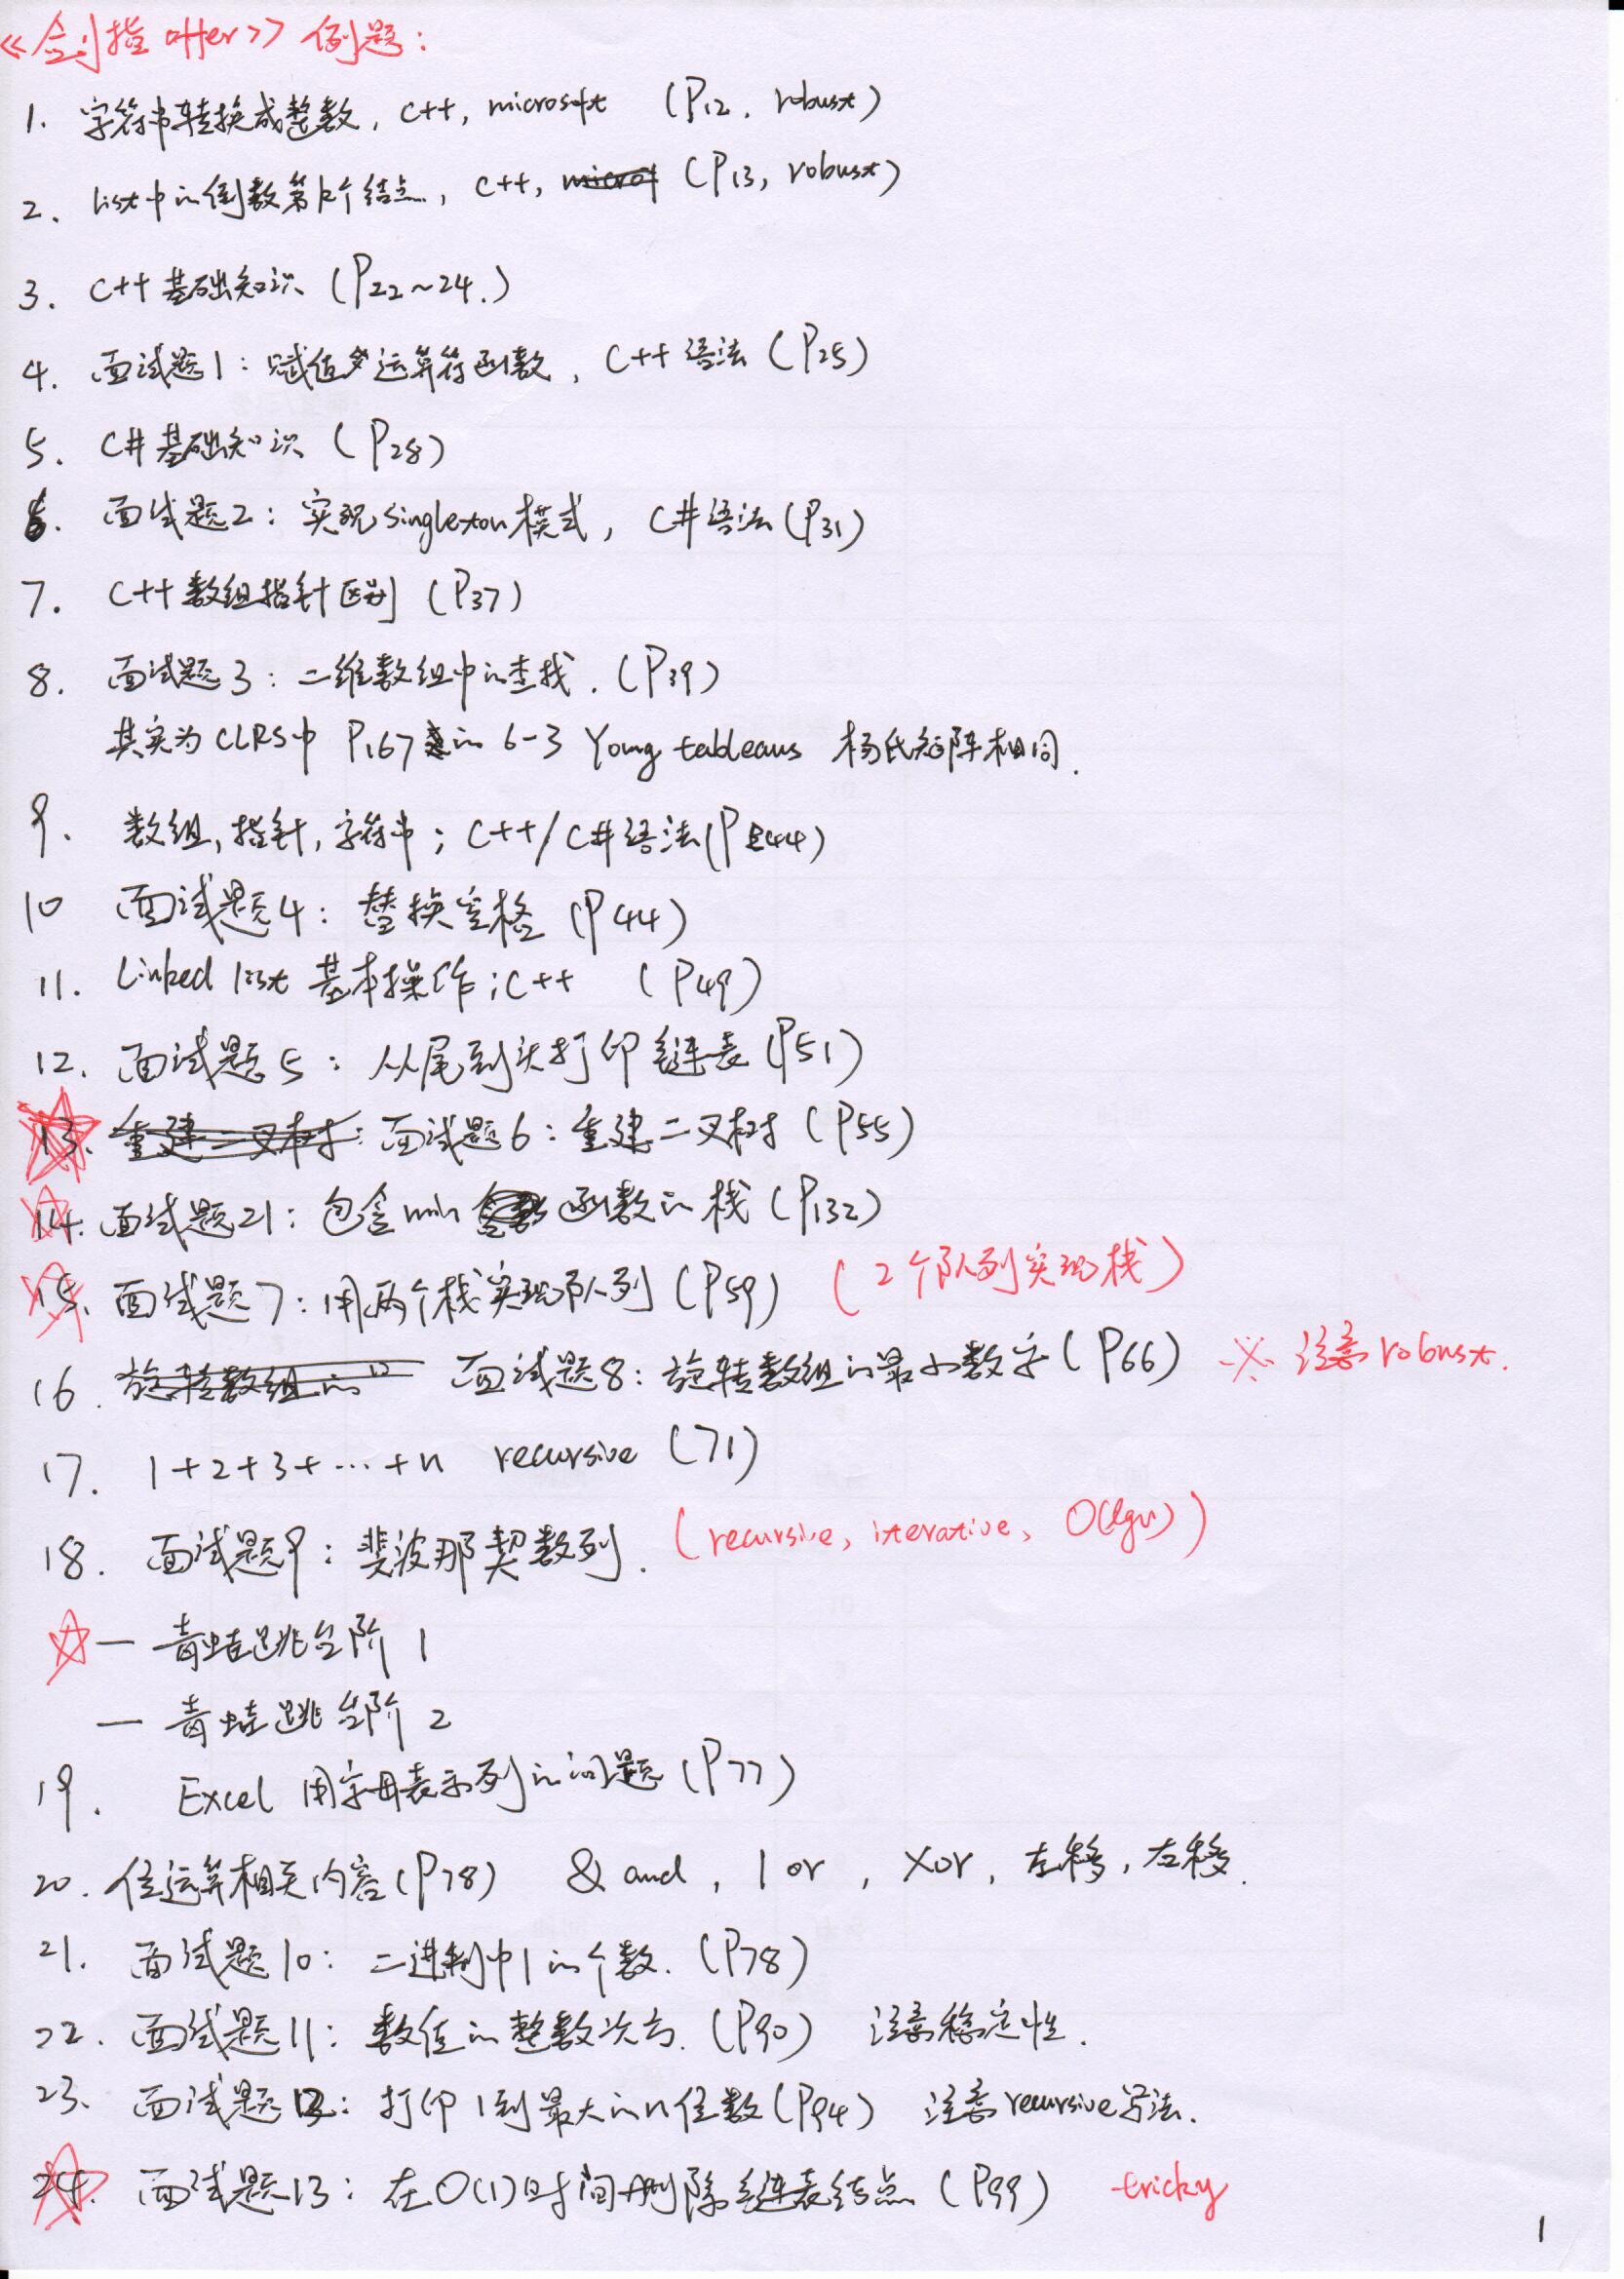 《剑指offer》例题:
1. 字符串转换成整数, C++, microsoft (P12, robust)
2. list中的倒数第k个结点, C++, (P13, robust)
3. C++基础知识 (P22~24.)
4. 面试题1: 赋值运算符函数, C++语法 (P25)
5. C#基础知识 (P28)
6. 面试题2: 实现singleton模式, C#语法 (P31)
7. C++数组指针区别 (P37)
8. 面试题3: 二维数组中的查找. (P39)
其实为CLRS中 P167 的 6-3 Young tableaus 杨氏矩阵相同.
9. 数组, 指针, 字符串; C++/C#语法 (P44)
10 面试题4: 替换空格 (P44)
11. Linked list 基本操作; C++ (P49)
12. 面试题5: 从尾到头打印链表 (P51)
13. 重建二叉树: 面试题6: 重建二叉树 (P55)
14. 面试题21: 包含min函数的栈 (P132)
15. 面试题7: 用两个栈实现队列 (P59) (2个队列实现栈)
16. 旋转数组的 面试题8: 旋转数组的最小数字 (P66) ※ 注意robust.
17. 1+2+3+…+n recursive (71)
18. 面试题9: 斐波那契数列. (recursive, iterative, O(lgn))
☆ — 青蛙跳台阶 1
— 青蛙跳台阶 2
19. Excel 用字母表示列的问题 (P77)
20. 位运算相关内容 (P78) & and, | or, xor, 左移, 右移.
21. 面试题10: 二进制中1的个数. (P78)
22. 面试题11: 数值的整数次方. (P90) 注意稳定性.
23. 面试题12: 打印1到最大的n位数 (P94) 注意recursive写法.
24. 面试题13: 在O(1)时间删除链表结点 (P99) tricky
1